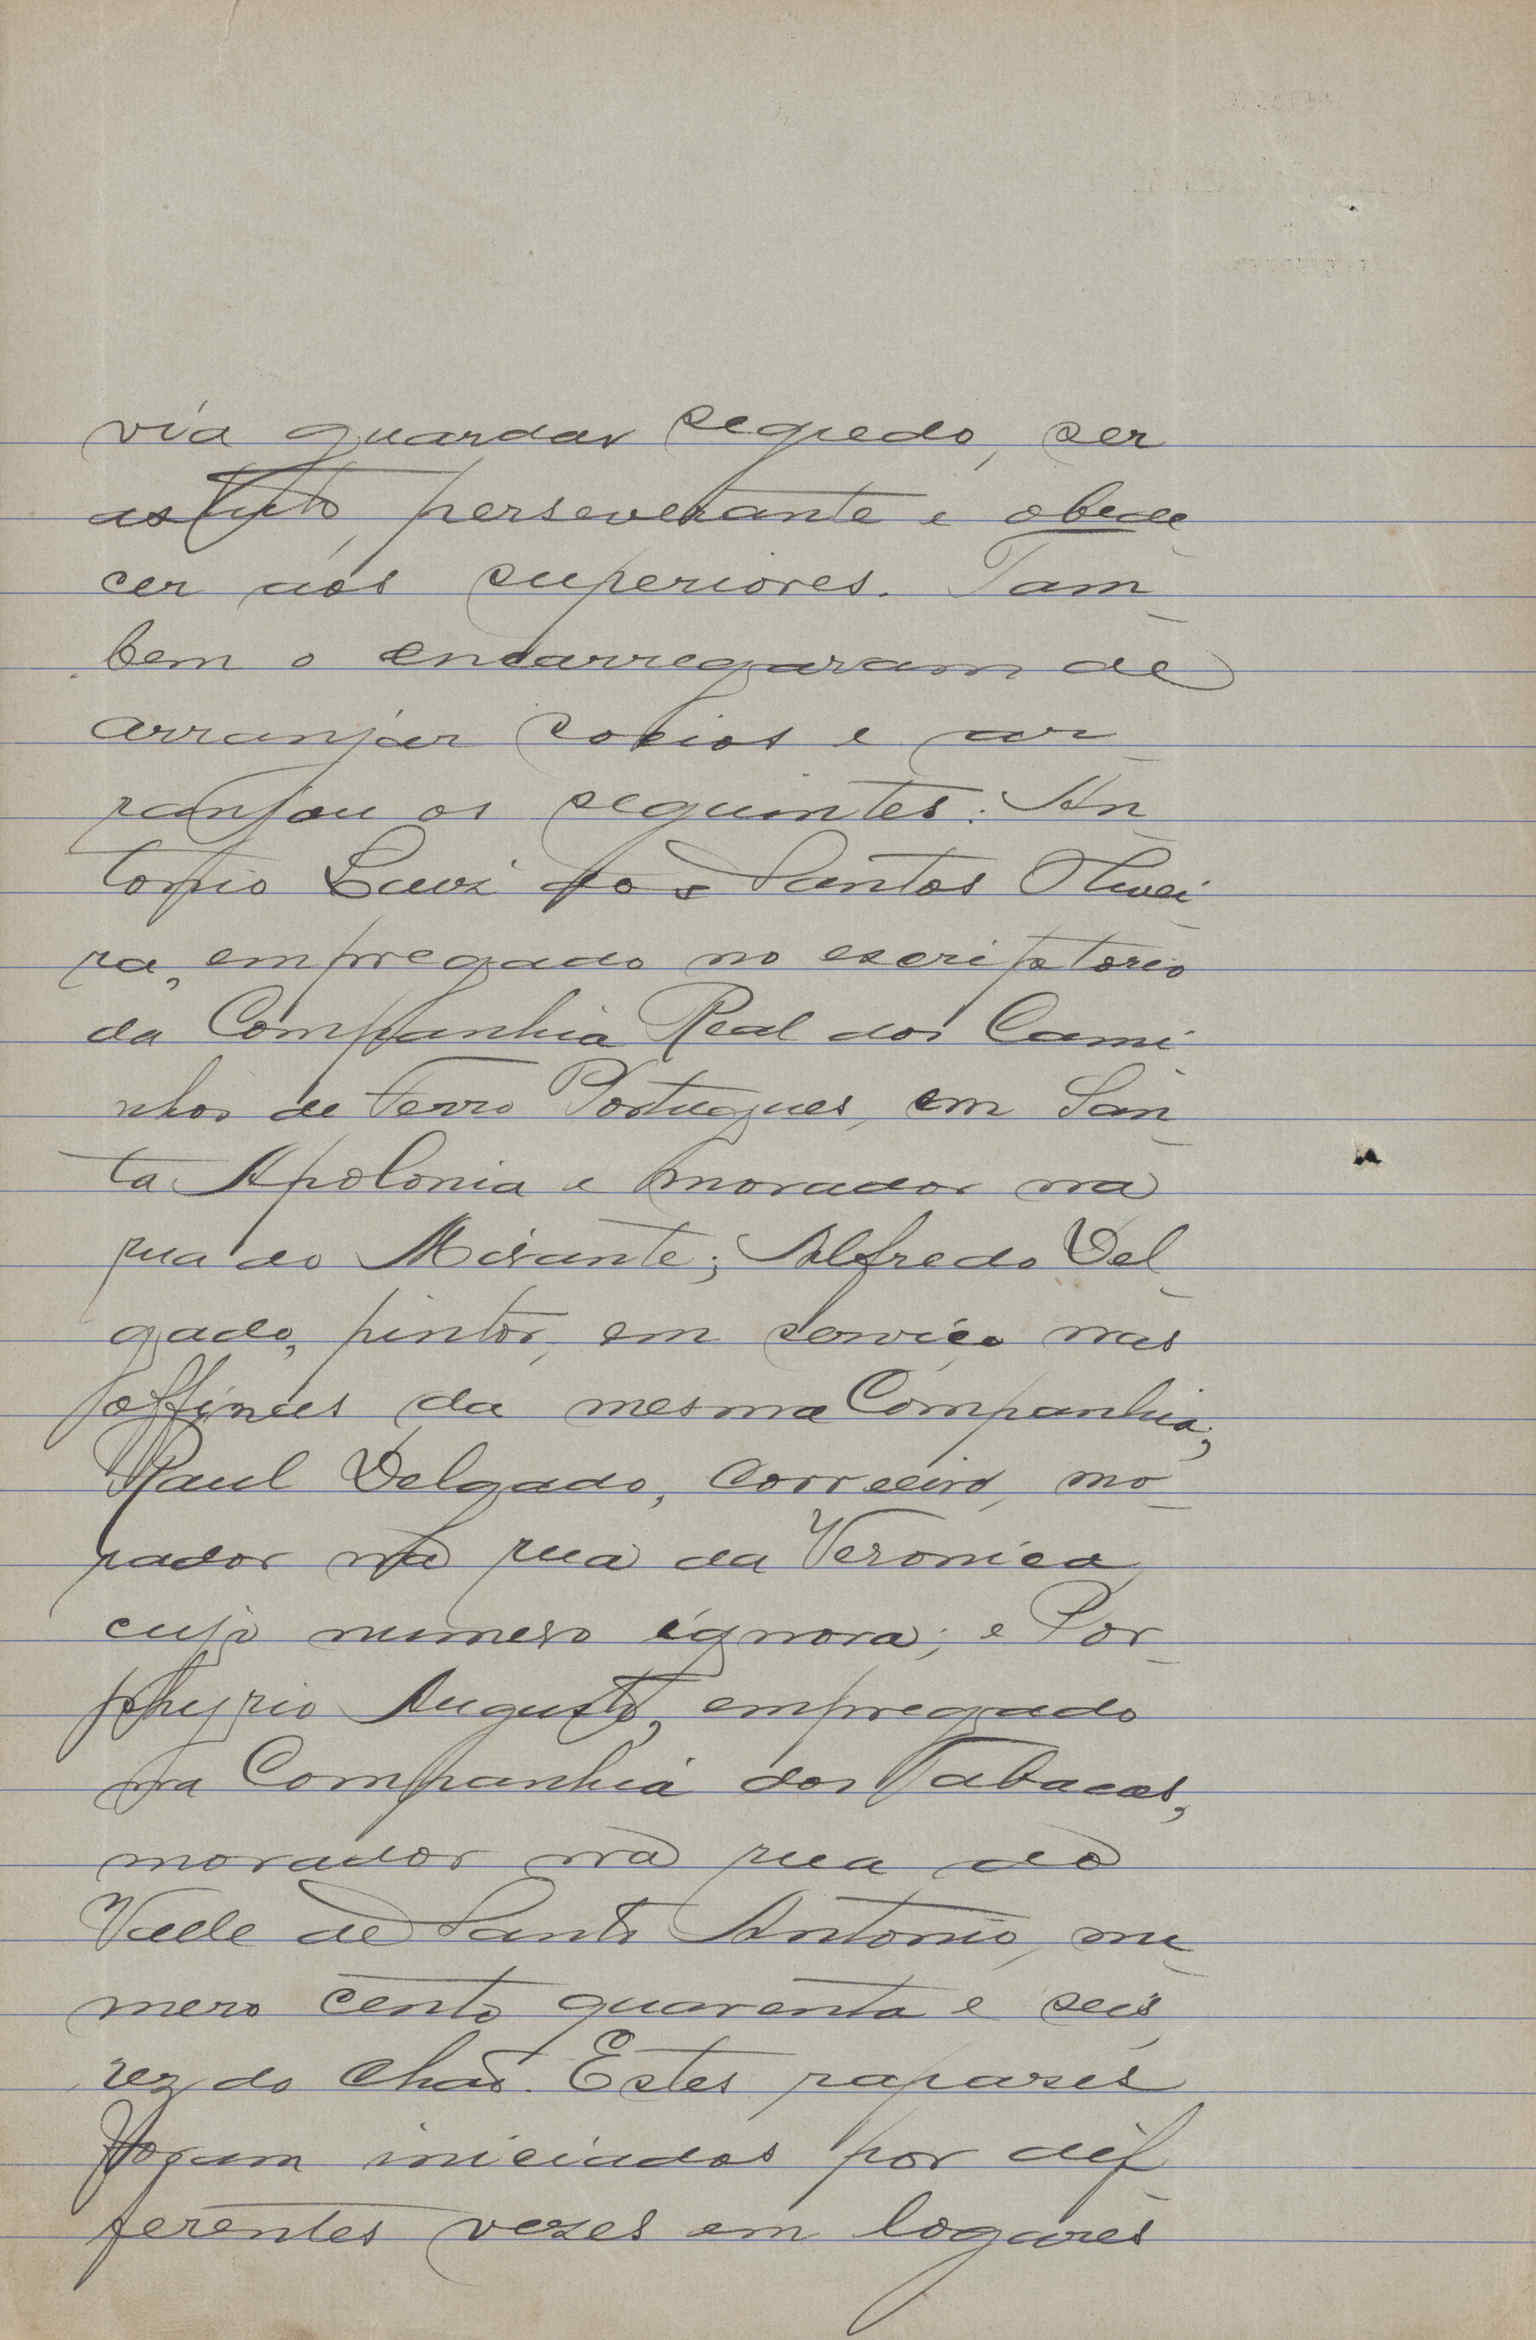 via guardar segredo, ser
astuto, perseverante e obede
cer aos superiores. Tam-
bem o encarregaram de
arranjar socios e ar-
ranjou os seguintes: An-
tonio Luiz dos Santos Olivei-
ra, empregado no escriptorio
da Companhia Real dos Cami-
nhos de Ferro Portugues, em San-
ta Apolonia e morador na
rua do Mirante; Alfredo Del-
gado, pintor, em serviço nas
offinas da mesma Companhia;
Raul Delgado, correeiro, mo-
rador na rua da Veronica,
cujo numero ignora; e Por-
phyrio Augusto, empregado
na Companhia dos Tabacos,
morador na rua do
Valle de Santo Antonio, nu-
mero cento quarenta e seis,
rez do chão. Estes rapazes
foram iniciados por dif-
ferentes vezes em logares